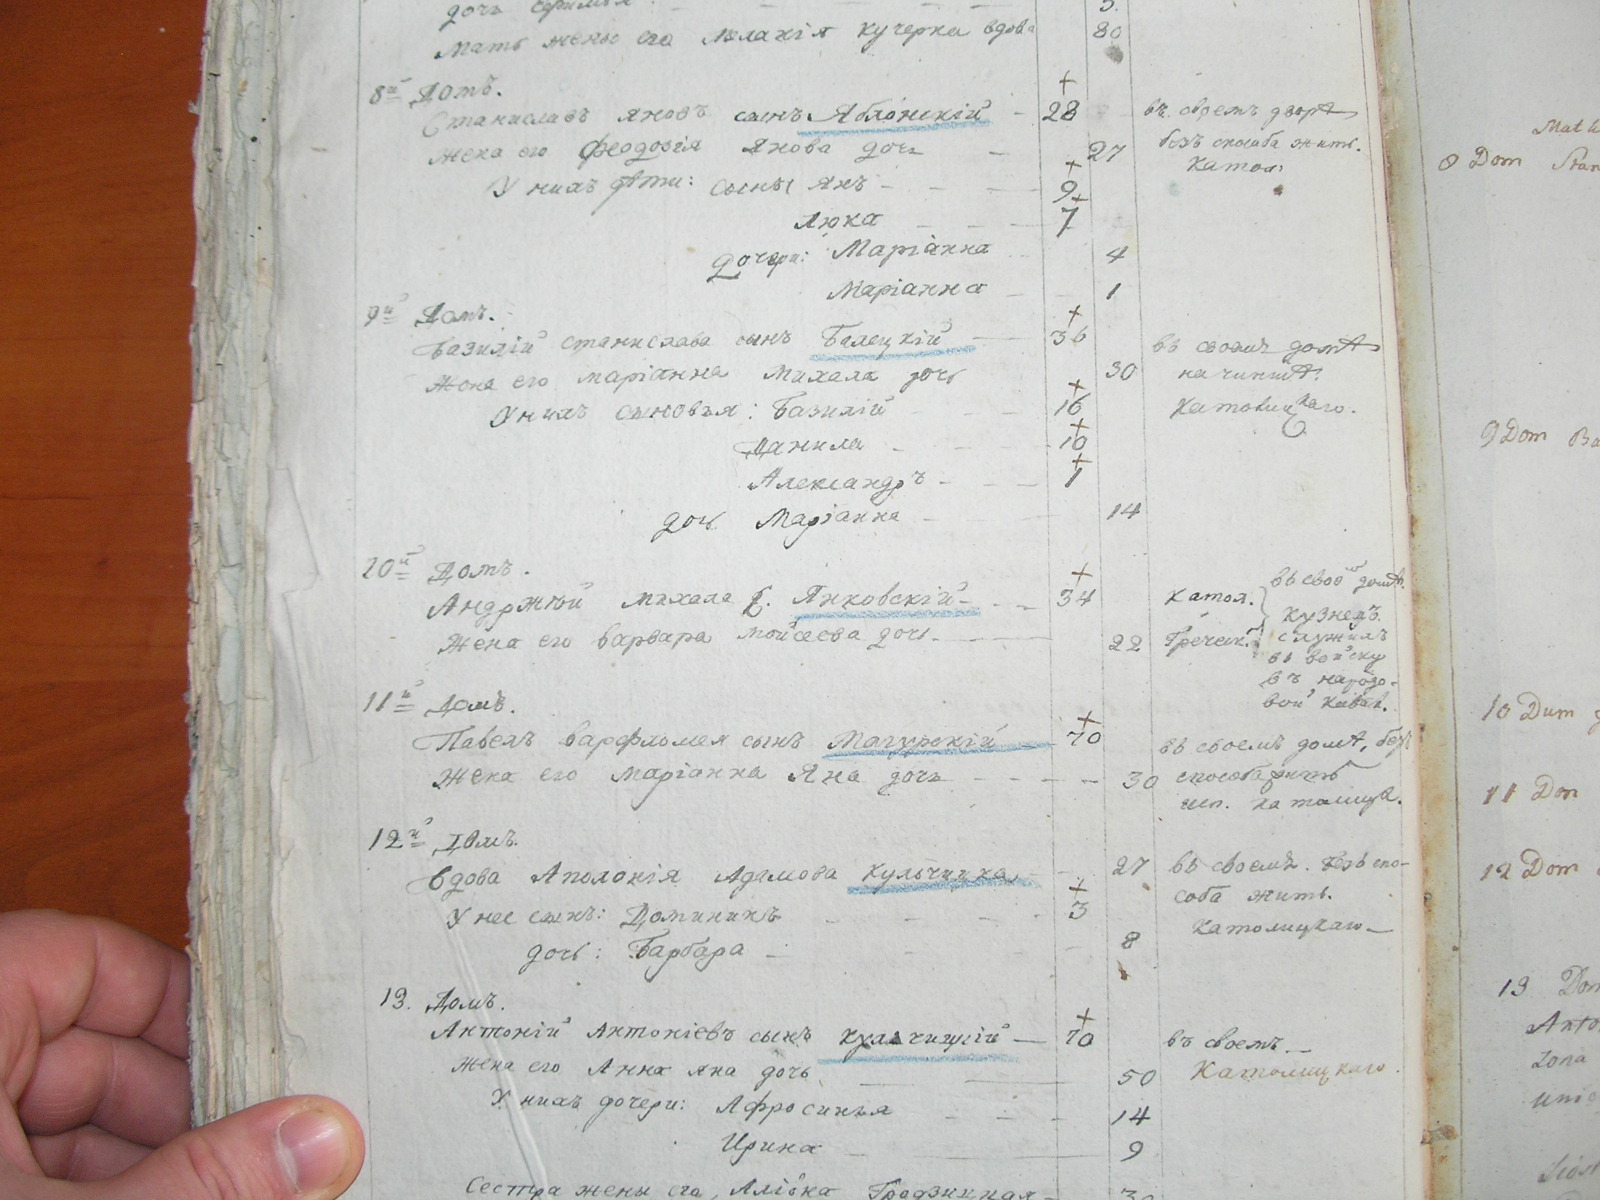 дочь
Мать жены его Мелахія Кучерка вдова 80
8й Домъ.
Станиславъ Яновъ сынъ Яблонскій 28 въ своемъ дворѣ
Жена его Феодозія Янова дочь 27 безъ способа жить.
У нихъ дѣти: сыны Янъ 9 катол:
7
дочери: Маріанна 4
Маріанна 1
9й Домъ.
Базилій Станислава сынъ Балецкій 36 въ своемъ домѣ
Жена его Маріанна Михала дочь 30 на чиншѣ.
У нихъ сыновья: Базилій 16 католицкаго.
Данила 10
Александръ 1
дочь Маріанна 14
10й Домъ.
Андржѣй Михала С. Янковскій 34 катол.
Жена его Варвара Мойсеева дочь 22 Гречск.
въ своемъ домѣ.
кузнецъ.
служилъ
въ войску
въ народо-
вой кавал.
11й Домъ.
Павелъ Варфломея сынъ Магурскій 70 въ своемъ домѣ, безъ
Жена его Маріанна Яна дочь 30 способа жить
исп. католицк.
12й Домъ.
Вдова Аполонія Адамова Кульчицка 27 въ своемъ. безъ спо-
У нее сынъ: Доминикъ 3 соба жить.
дочь: Барбара 8 католицкаго
13. Домъ.
Антоній Антоніевъ сынъ Кульчицкій 70 въ своемъ
Жена его Анна Яна дочь 50 Католицкаго
У нихъ дочери: Афросинья 14
Ирина 9
Сестра жены его,
8 Dom Stan
9 Dom Ba
10 Dum
11 Dom
12 Dom
13 Dom
Anto
Zona